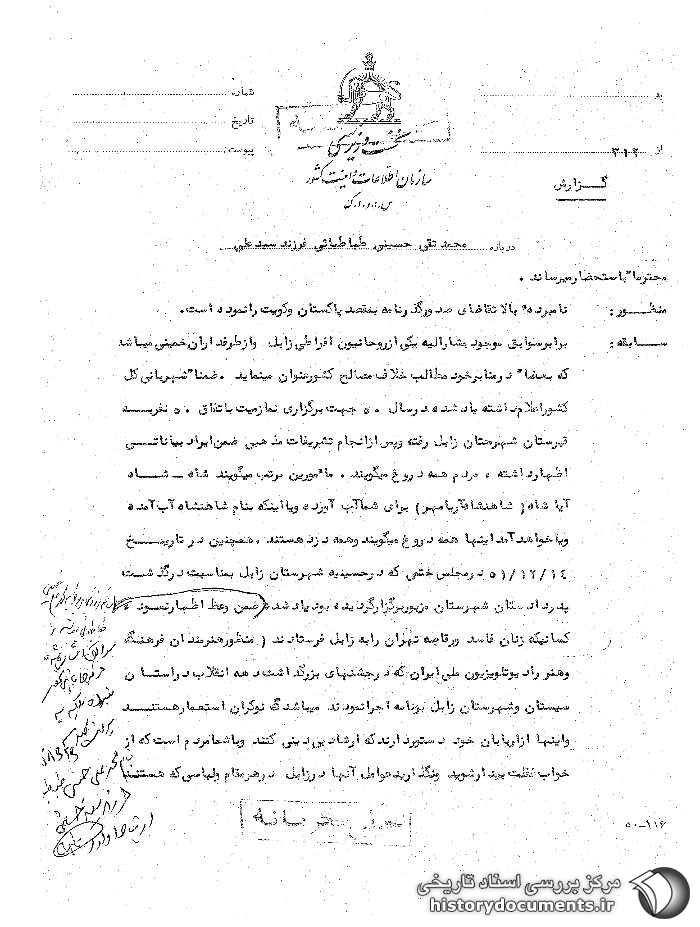 به
شماره
تاریخ
از ۳۱۲
پیوست
نخست وزیری
سازمان اطلاعات و امنیت کشور
س.ا.و.ا.ک
گزارش
درباره محمد تقی حسینی طباطبائی فرزند سید علی
محترما" باستحضار میرساند .
منظور : نامبرده بالا تقاضای صدور گذرنامه بمقصد پاکستان وکویت را نموده است.
سابقه : برابر سوابق موجود مشارالیه یکی از روحانیون افراطی زابل وازطرفداران خمینی میباشد
که بعضا" در منابر خود مطالب خلاف مصالح کشور عنوان مینماید . ضمنا" شهربانی کل
کشور اعلام داشته یاد شده در سال ۵۰ جهت برگزاری نماز میت باتفاق ۵۰ نفر به
قبرستان شهرستان زابل رفته وپس از انجام تشریفات مذهبی ضمن ایراد بیاناتی
اظهار داشته ، مردم همه دروغ میگویند . مامورین مرتب میگویند شاه - شاه
آیا شاه ( شاهنشاه آریامهر ) برای شما آب آورده ویا اینکه بنام شاهنشاه آب آمده
ویا خواهد آمد اینها همه دروغ میگویند وهمه دزد هستند . همچنین در تاریخ
۵۱/۱۲/۱۴ در مجلس ختمی که در حسینیه شهرستان زابل بمناسبت درگذشت
پدر دادستان شهرستان مزبور برگزار گردیده بود یاد شده ضمن وعظ اظهار نموده
کسانیکه زنان فاسد ورقاصه تهران را به زابل فرستادند ( منظور هنرمندان فرهنگ
وهنر رادیو تلویزیون ملی ایران که در جشنهای بزرگداشت دهه انقلاب در استان
سیستان وشهرستان زابل برنامه اجرا نمودند میباشد ) نوکران استعمار هستند
واینها از اربابان خود دستور دارند که ارشاد بی دینی کنند وبا شما مردم است که از
خواب غفلت بیدار شوید ونگذارید عوامل آنها در زابل در هر مقام ولباسی که هستند
۵۰-۱۱۶
خیلی محرمانه
مرکز بررسی اسناد تاریخی
historydocuments.ir